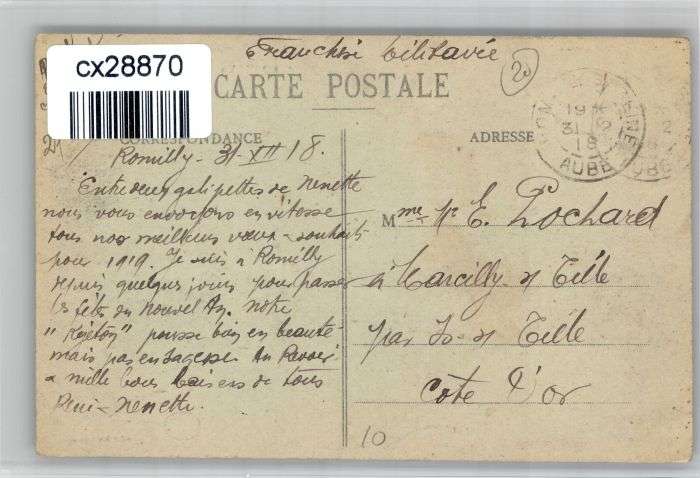 cx28870
Franchise Militaire
20
CARTE POSTALE
CORRESPONDANCE
ADRESSE
19
31
18
AUBE
Romilly - 31-XII 18.
Entre deux galipettes de Nenette
nous vous envoyons en vitesse
tous nos meilleurs vœux - souhaits
pour 1919. Je suis à Romilly
depuis quelques jours pour passer
les fêtes du Nouvel An. Notre
" Rejeton" pousse bien en beauté
mais pas en sagesse. Au Revoir
& mille bons baisers de tous
René - Nenette.
Mme E. Pochard
à Marcilly s/ Tille
par Is-s/ Tille
Cote d'Or
10